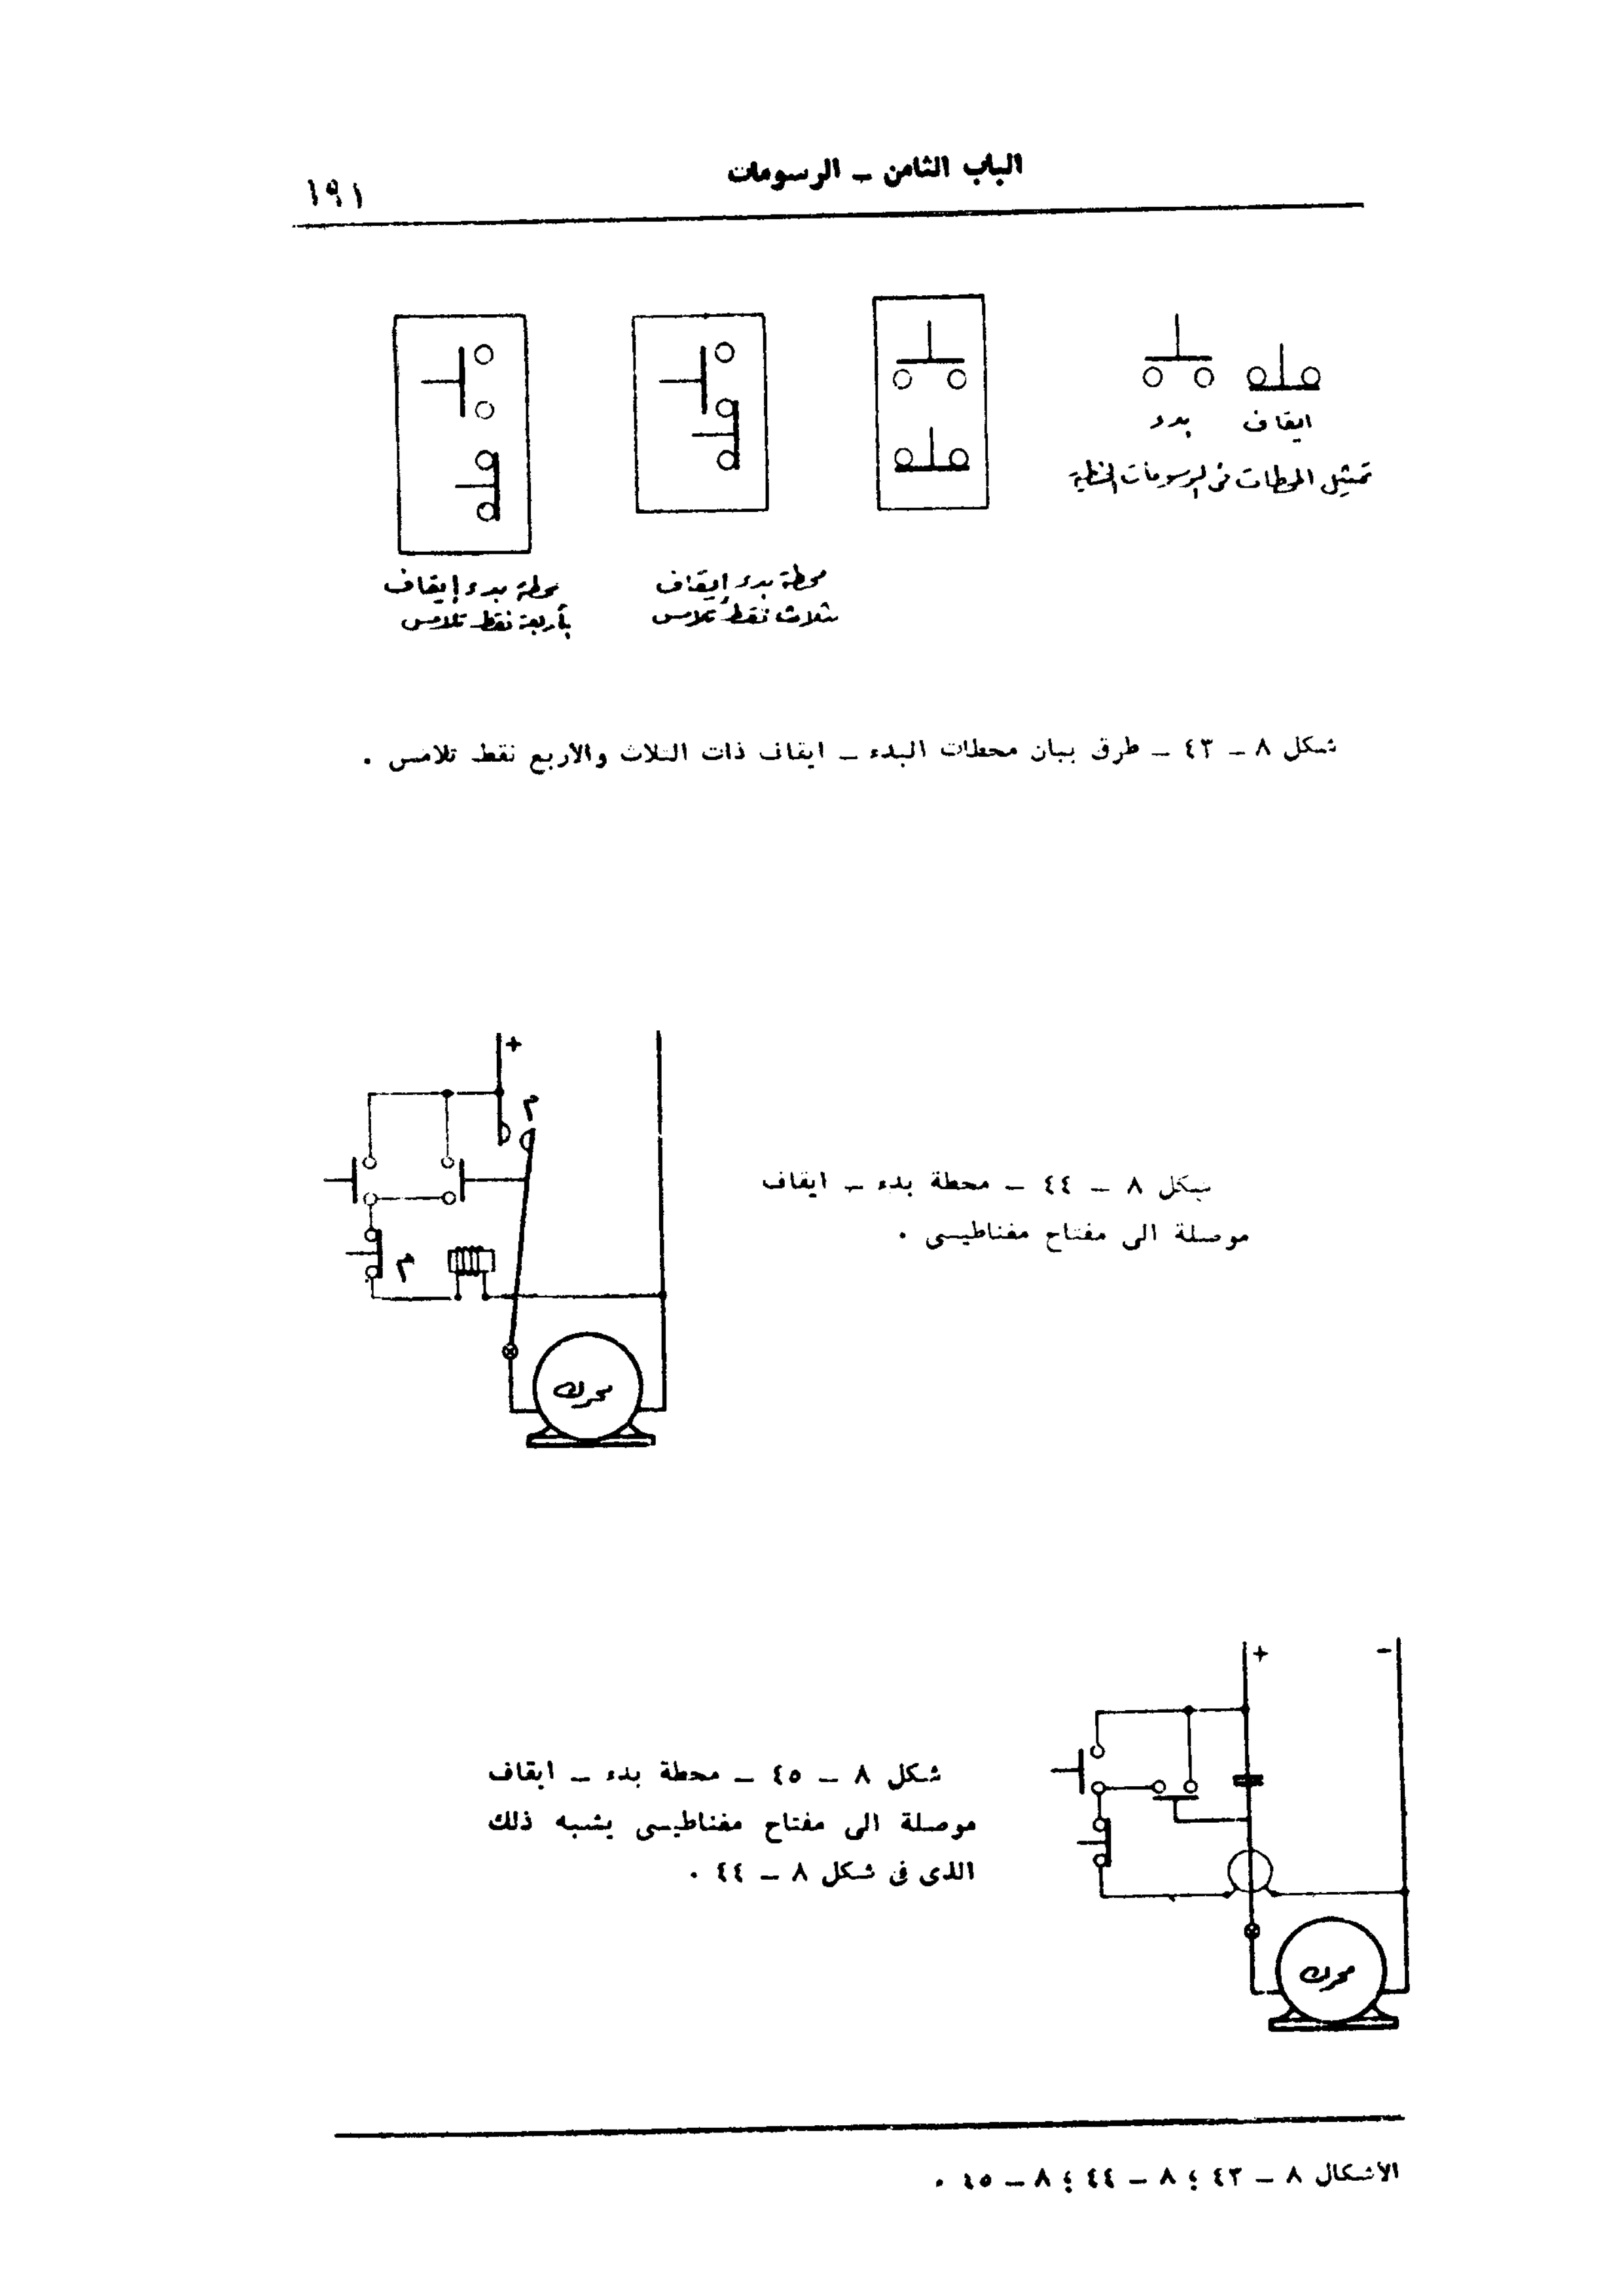 الباب الثامن – الرسومات
١٩١
ايقاف
بدء
تمثيل المحطات فى الرسومات الخطية
محطة بدء إيقاف
بثلاث نقط تلامس
محطة بدء إيقاف
بأربعة نقط تلامس
شكل ٨ – ٤٣ – طرق بيان محطات البدء – ايقاف ذات الثلاث والأربع نقط تلامس .
+
م
م
محرك
شكل ٨ – ٤٤ – محطة بدء – ايقاف
موصلة الى مفتاح مغناطيسى .
+
–
محرك
شكل ٨ – ٤٥ – محطة بدء – ايقاف
موصلة الى مفتاح مغناطيسى يشبه ذلك
الذى فى شكل ٨ – ٤٤ .
الأشكال ٨ – ٤٣ ؛ ٨ – ٤٤ ؛ ٨ – ٤٥ .